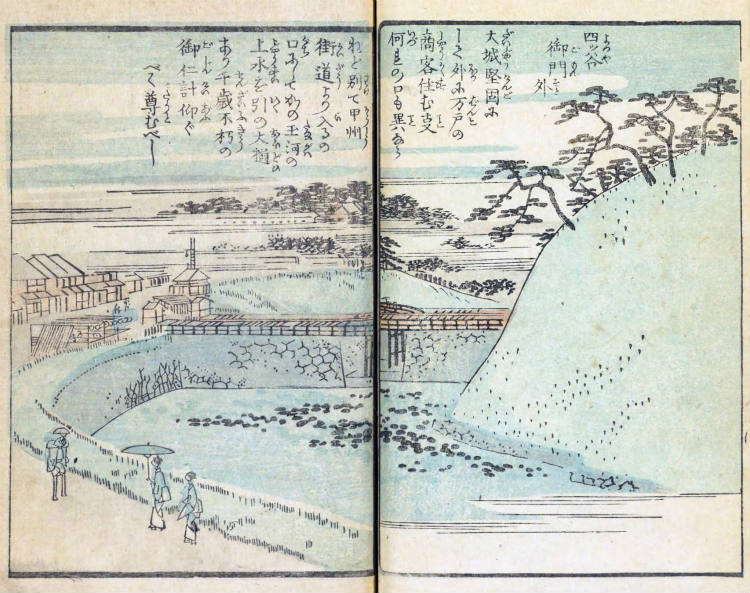 四ッ谷
御門外
大城堅固に
して外に万戸の
商客住む事
何れの口も異ハなけ
れど別て甲州
街道より入るの
口にしてかの玉河の
上水を引の大樋
あり千歳不朽の
御仁計仰ぐ
べく尊むべし